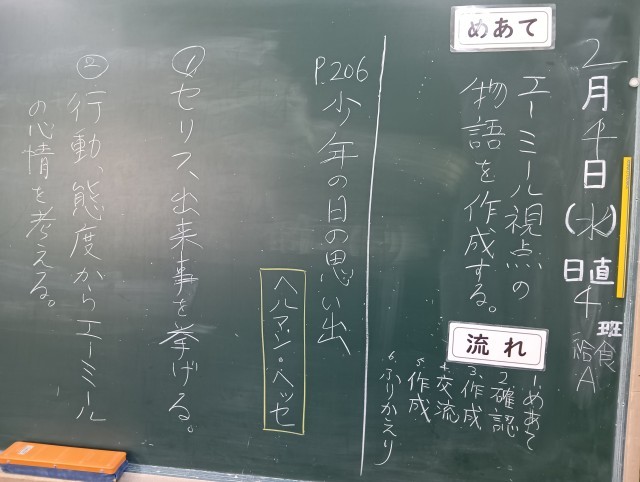 2月4日(水)
日直4班
給食A
めあて
エーミール視点の
物語を作成する。
流れ
1.めあて
2.確認
3.作成
4.交流
5.作成
6.ふりかえり
P.206 少年の日の思い出
ヘルマン・ヘッセ
①セリフ、出来事を挙げる。
②行動、態度からエーミール
の心情を考える。